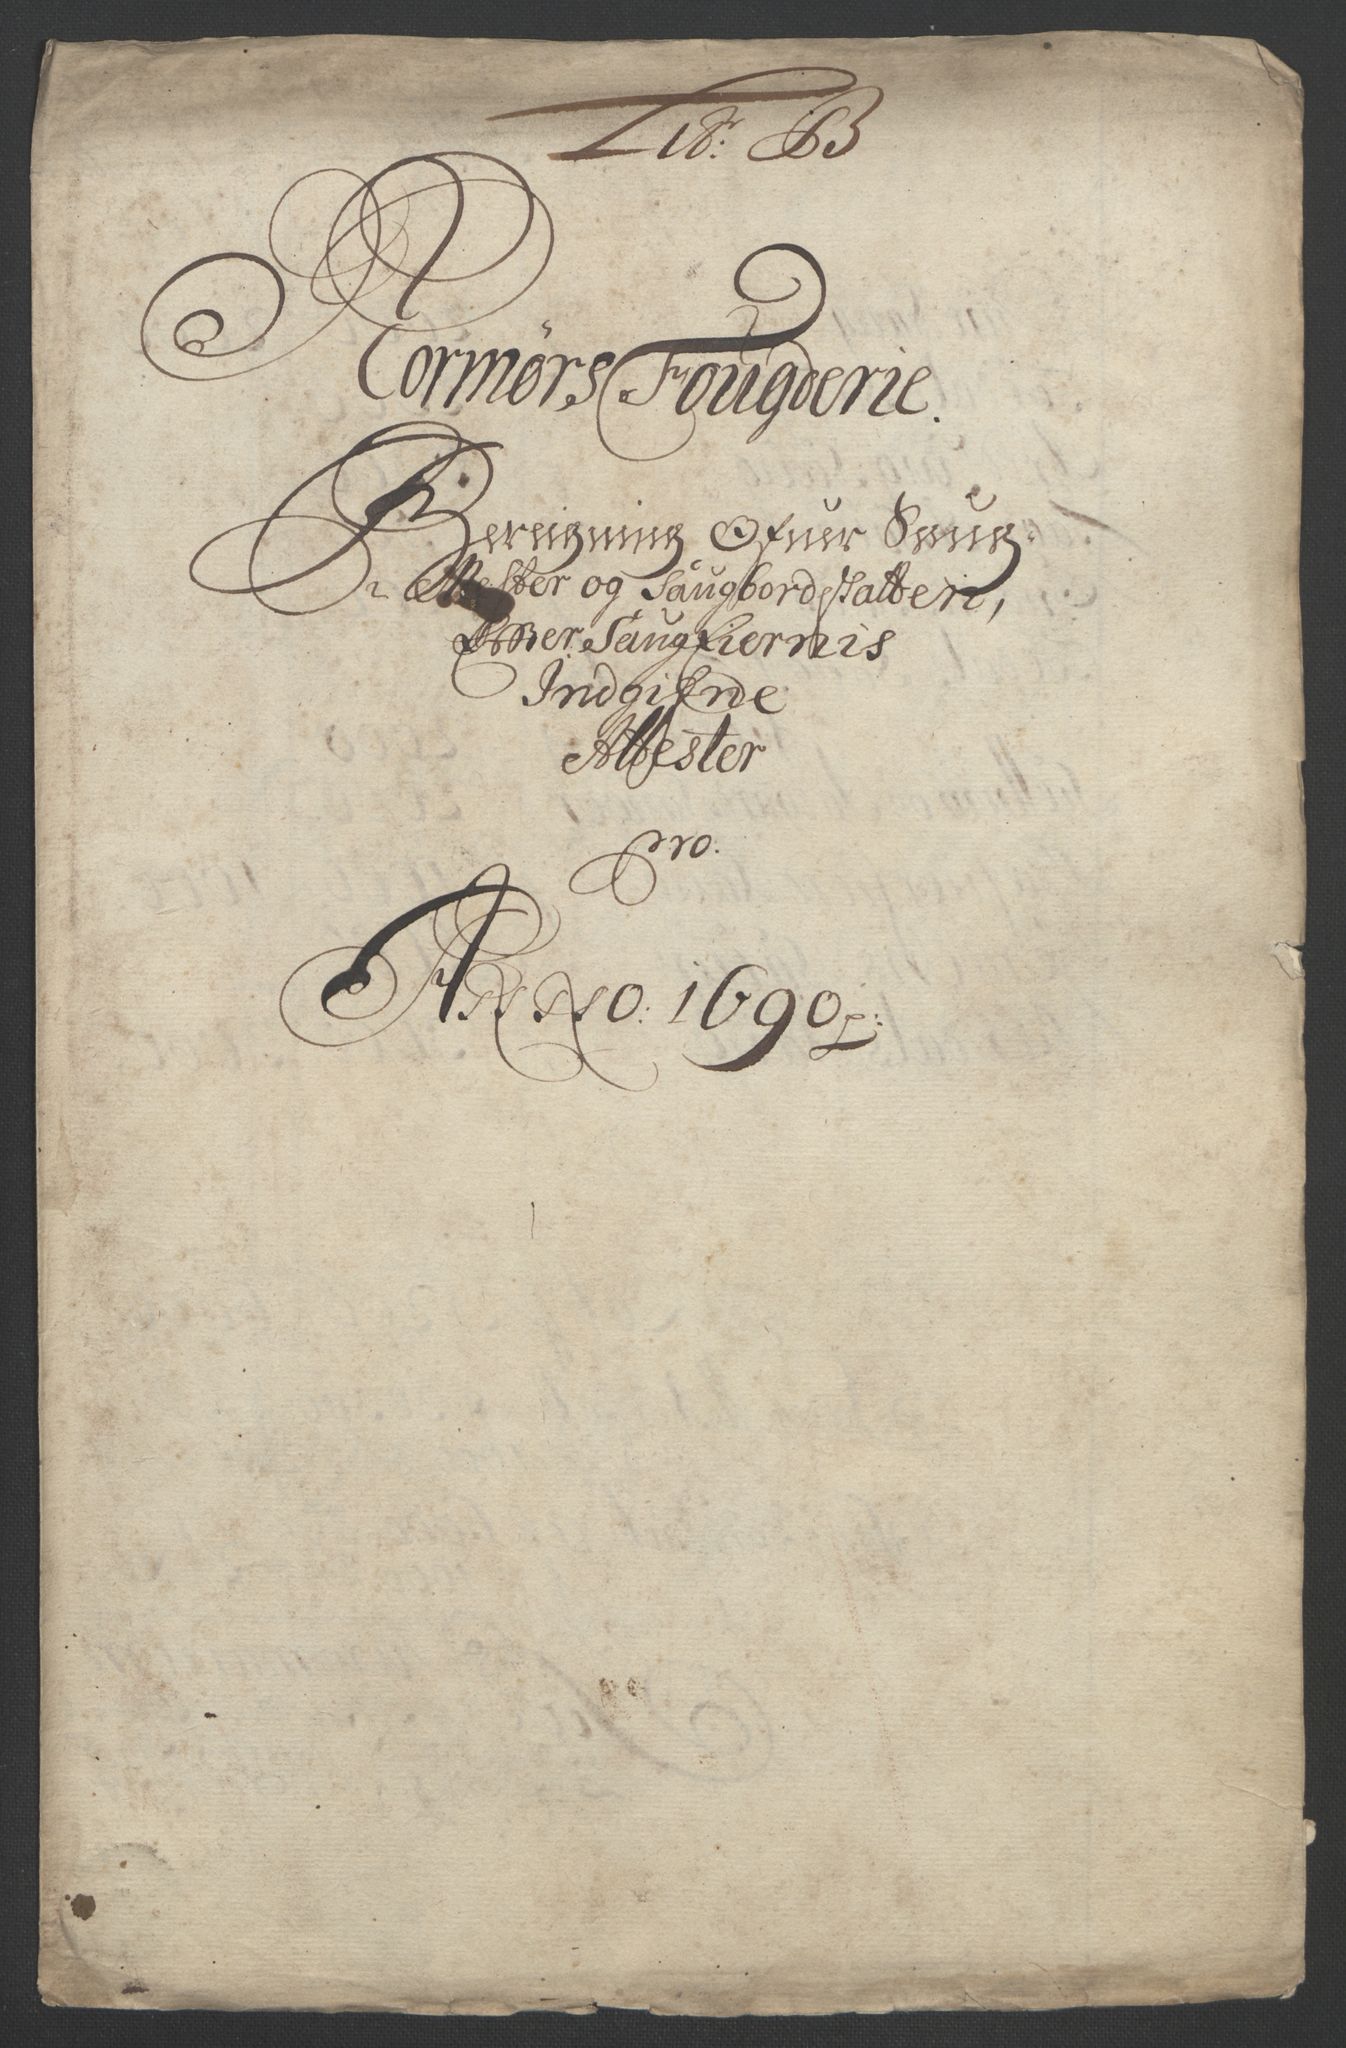 Litr: B
Normørs Fougderie.
Beregning Ofuer Saug-
Mester og Saugbordskatten,
Effter Saugeiernis
Indgifne
Attester
pro.
Anno: 1690